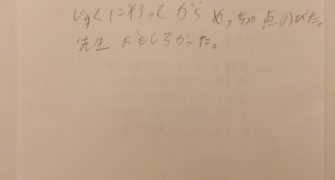 じゅくに行ってから めっちゃ点のびた。
先生 おもしろかった。